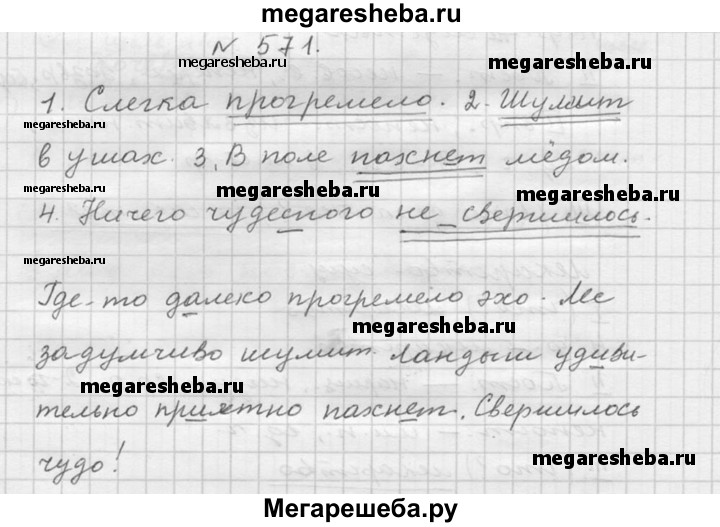 megaresheba.ru
№ 571.
megaresheba.ru
megaresheba.ru
1. Слегка прогремело. 2. Шумит
megaresheba.ru
в ушах. 3. В поле пахнет мёдом.
megaresheba.ru
megaresheba.ru
4. Ничего чудесного не свершилось.
megaresheba.ru
Где-то далеко прогремело эхо. Лес
megaresheba.ru
задумчиво шумит. Ландыш удиви-
megaresheba.ru
тельно приятно пахнет. Свершилось
чудо!
megaresheba.ru
Мегарешеба.ру